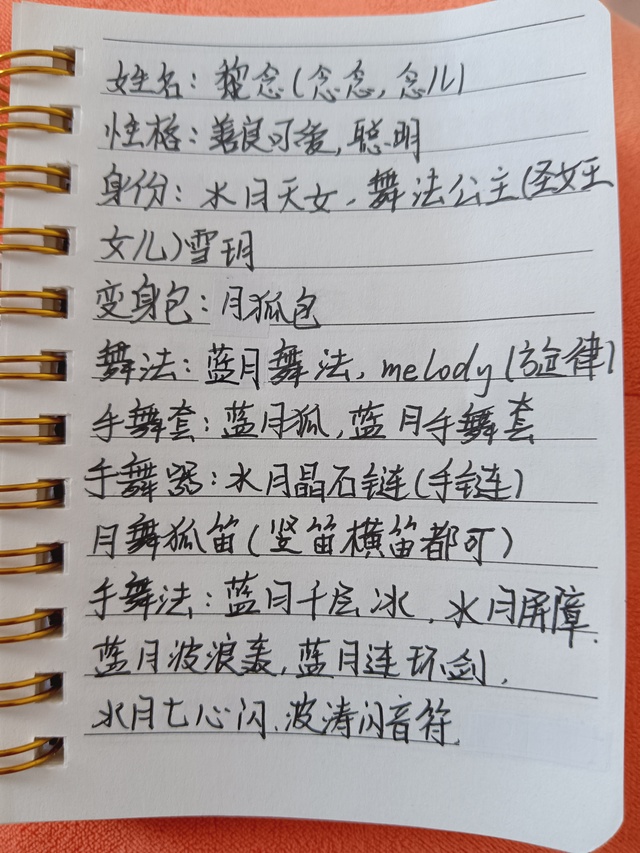 姓名：黎念(念念,念儿)
性格：善良可爱,聪明
身份：水月天女、舞法公主(圣女王
女儿)雪玥
变身包：月狐包
舞法：蓝月舞法、melody(旋律)
手舞套：蓝月狐,蓝月手舞套
手舞器：水月晶石链(手链)
月舞狐笛(竖笛横笛都可)
手舞法：蓝月千层冰、水月屏障、
蓝月波浪轰,蓝月连环剑、
水月七心闪、波涛闪音符、